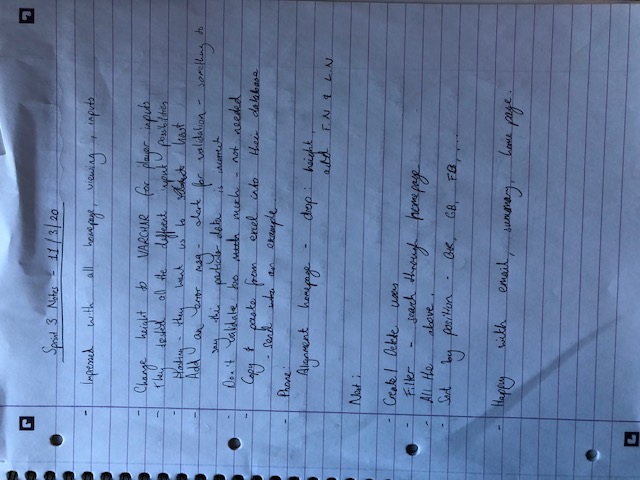 Sprint 3 Notes - 11/3/20
- Impressed with all homepage, viewing, inputs
- Change height to VARCHAR for player inputs
- They tested all the different input possibilities
- Hosting - they want us to host
- Add an error msg - alert for validation - something to
say this particular data is incorrect
- Don't validate too much - not needed
- Copy & paste from excel into their database
- send an example
- Phone:
Alignment homepage - drop: height,
add F.N & L.N
Next:
- Create / Delete users
- Filter - search through homepage
- All the above.
- Sort by position - GK, CB, FB, ...
- Happy with email, summary, home page.